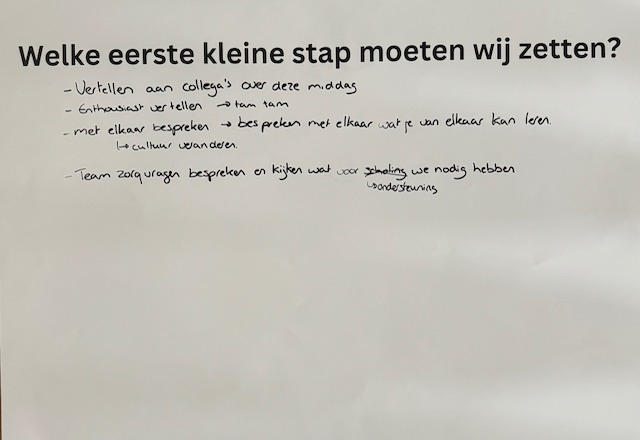 Welke eerste kleine stap moeten wij zetten?
- Vertellen aan collega's over deze middag
- Enthousiast vertellen → tam tam
- met elkaar bespreken → bespreken met elkaar wat je van elkaar kan leren.
↳ cultuur veranderen.
- Team zorgvragen bespreken en kijken wat voor scholing we nodig hebben
↳ ondersteuning